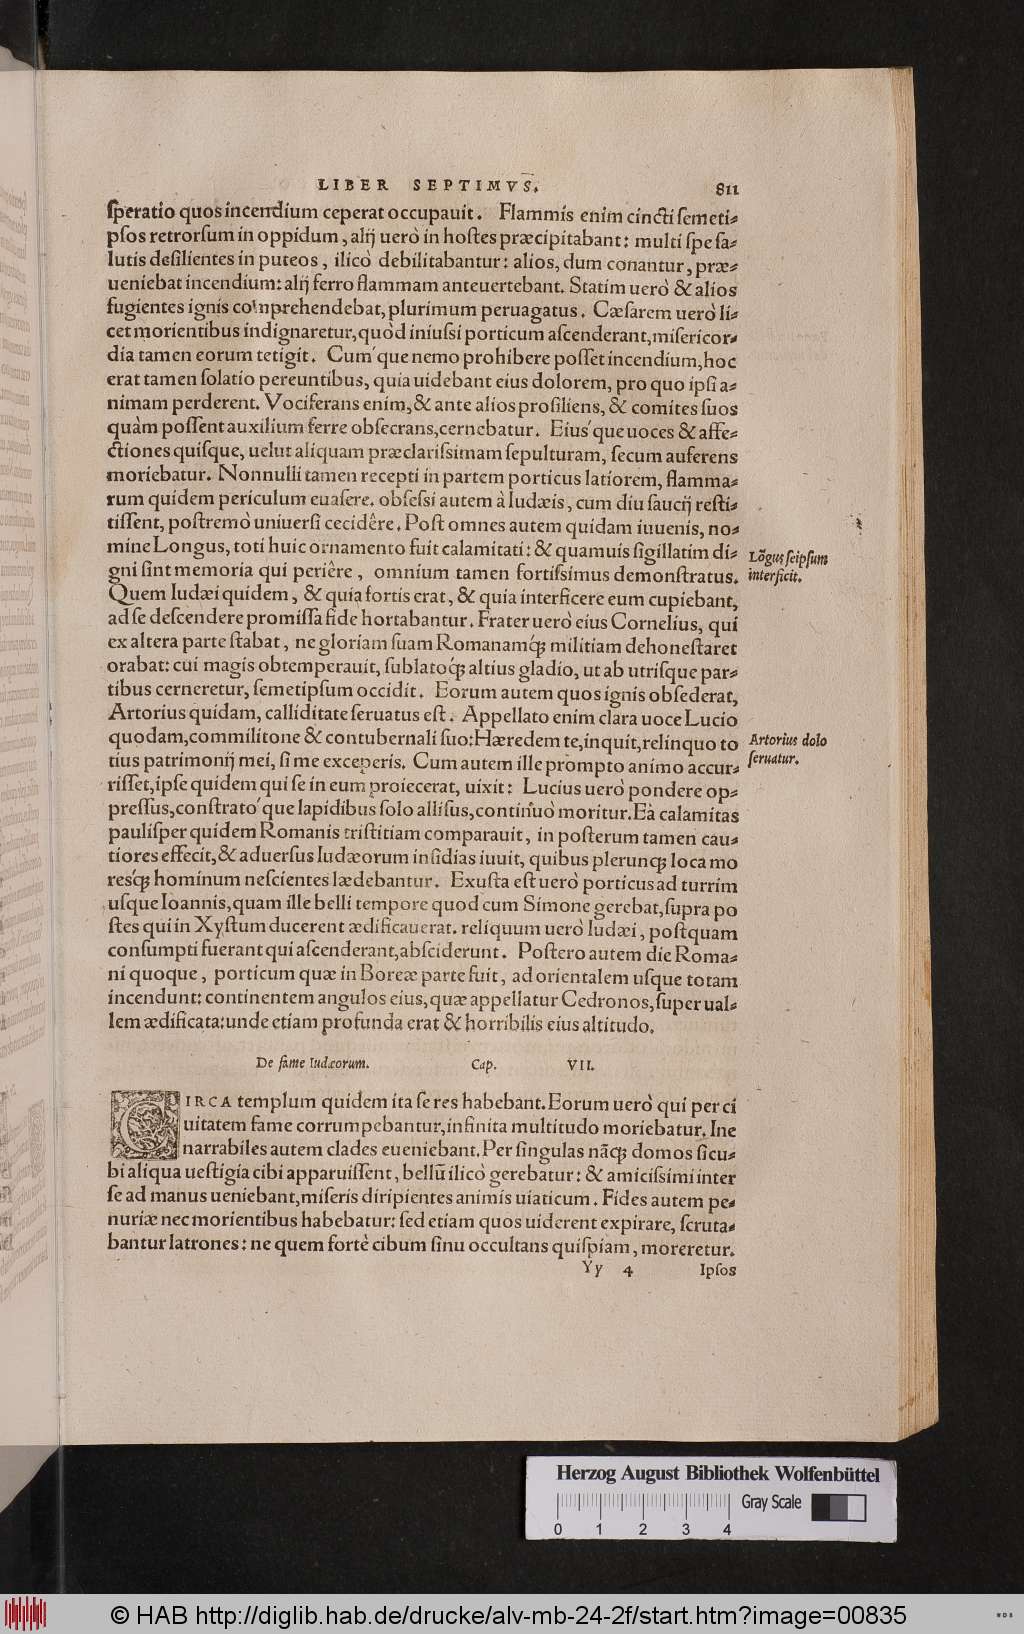 LIBER SEPTIMVS. 811
ſperatio quos incendium ceperat occupauit. Flammis enim cincti ſemeti-
pſos retrorſum in oppidum, alij uerò in hoſtes præcipitabant: multi ſpe ſa-
lutis deſilientes in puteos, ilicò debilitabantur: alios, dum conantur, præ-
ueniebat incendium: alij ferro flammam anteuertebant. Statim uerò & alios
fugientes ignis comprehendebat, plurimum peruagatus. Cæſarem uerò li-
cet morientibus indignaretur, quòd iniuſsi porticum aſcenderant, miſericor-
dia tamen eorum tetigit. Cum'que nemo prohibere poſſet incendium, hoc
erat tamen ſolatio pereuntibus, quia uidebant eius dolorem, pro quo ipſi a-
nimam perderent. Vociferans enim, & ante alios proſiliens, & comites ſuos
quàm poſſent auxilium ferre obſecrans, cernebatur. Eius'que uoces & affe-
ctiones quiſque, uelut aliquam præclariſsimam ſepulturam, ſecum auferens
moriebatur. Nonnulli tamen recepti in partem porticus latiorem, flamma-
rum quidem periculum euaſere. obſeſsi autem à Iudæis, cum diu ſaucij reſti-
tiſſent, poſtremò uniuerſi cecidêre. Poſt omnes autem quidam iuuenis, no-
mine Longus, toti huic ornamento fuit calamitati: & quamuis ſigillatim di-
gni ſint memoria qui periêre, omnium tamen fortiſsimus demonſtratus.
Lõgus ſeipſum
interficit.
Quem Iudæi quidem, & quia fortis erat, & quia interficere eum cupiebant,
ad ſe deſcendere promiſſa fide hortabantur. Frater uerò eius Cornelius, qui
ex altera parte ſtabat, ne gloriam ſuam Romanamq́; militiam dehoneſtaret
orabat: cui magis obtemperauit, ſublatoq́; altius gladio, ut ab utriſque par-
tibus cerneretur, ſemetipſum occidit. Eorum autem quos ignis obſederat,
Artorius quidam, calliditate ſeruatus eſt. Appellato enim clara uoce Lucio
quodam, commilitone & contubernali ſuo: Hæredem te, inquit, relinquo to
Artorius dolo
ſeruatur.
tius patrimonij mei, ſi me exceperis. Cum autem ille prompto animo accur-
riſſet, ipſe quidem qui ſe in eum proiecerat, uixit: Lucius uerò pondere op-
preſſus, conſtrato'que lapidibus ſolo alliſus, continuò moritur. Eà calamitas
pauliſper quidem Romanis triſtitiam comparauit, in poſterum tamen cau-
tiores effecit, & aduerſus Iudæorum inſidias iuuit, quibus plerunq; loca mo
resq́; hominum neſcientes lædebantur. Exuſta eſt uerò porticus ad turrim
uſque Ioannis, quam ille belli tempore quod cum Simone gerebat, ſupra po
ſtes qui in Xyſtum ducerent ædificauerat. reliquum uerò Iudæi, poſtquam
conſumpti fuerant qui aſcenderant, abſciderunt. Poſtero autem die Roma-
ni quoque, porticum quæ in Boreæ parte fuit, ad orientalem uſque totam
incendunt: continentem angulos eius, quæ appellatur Cedronos, ſuper ual-
lem ædificata: unde etiam profunda erat & horribilis eius altitudo.
De fame Iudæorum. Cap. VII.
CIRCA templum quidem ita ſe res habebant. Eorum uerò qui per ci
uitatem fame corrumpebantur, infinita multitudo moriebatur. Ine
narrabiles autem clades eueniebant. Per ſingulas nãq; domos ſicu-
bi aliqua ueſtigia cibi apparuiſſent, bellũ ilicò gerebatur: & amiciſsimi inter
ſe ad manus ueniebant, miſeris diripientes animis uiaticum. Fides autem pe-
nuriæ nec morientibus habebatur: ſed etiam quos uiderent expirare, ſcruta-
bantur latrones: ne quem fortè cibum ſinu occultans quiſpiam, moreretur.
Yy 4 Ipſos
Herzog August Bibliothek Wolfenbüttel
Gray Scale
0 1 2 3 4
© HAB http://diglib.hab.de/drucke/alv-mb-24-2f/start.htm?image=00835